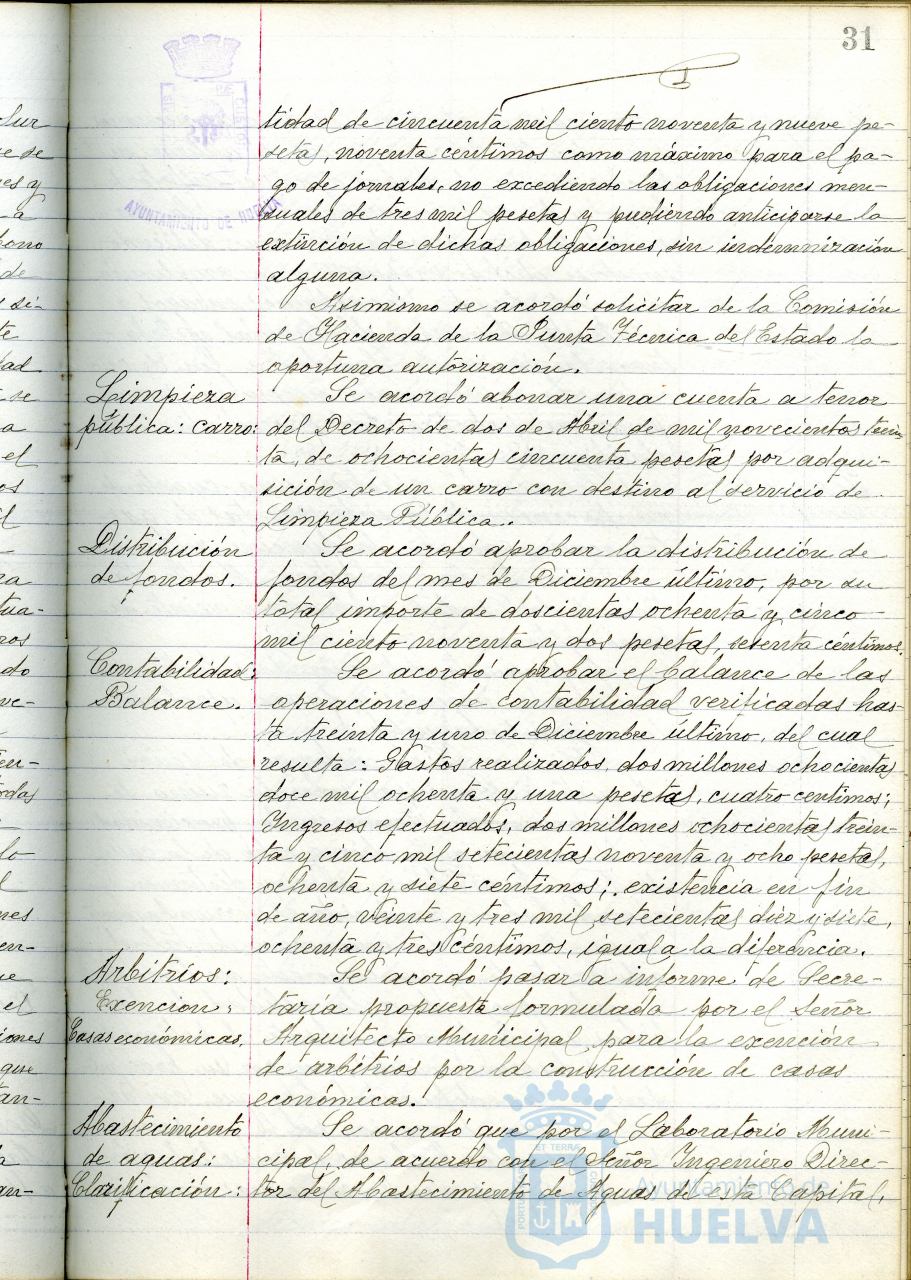 31
AYUNTAMIENTO DE HUELVA
tidad de cincuenta mil ciento noventa y nueve pe-
setas, noventa céntimos como máximo para el pa-
go de jornales, no excediendo las obligaciones men-
suales de tres mil pesetas y pudiendo anticiparse la
extinción de dichas obligaciones, sin indemnización
alguna.
Asimismo se acordó solicitar de la Comisión
de Hacienda de la Junta Técnica del Estado la
oportuna autorización.
Limpieza
pública: carro:
Se acordó abonar una cuenta a tenor
del Decreto de dos de Abril de mil novecientos trein-
ta, de ochocientas cincuenta pesetas por adqui-
sición de un carro con destino al servicio de
Limpieza Pública.
Distribución
de fondos.
Se acordó aprobar la distribución de
fondos del mes de Diciembre último, por su
total importe de doscientas ochenta y cinco
mil ciento noventa y dos pesetas, sesenta céntimos.
Contabilidad:
Balance.
Se acordó aprobar el balance de las
operaciones de contabilidad verificadas has-
ta treinta y uno de Diciembre último, del cual
resulta: Gastos realizados, dos millones ochocientas
doce mil ochenta y una pesetas, cuatro centimos;
Ingresos efectuados, dos millones ochocientas trein-
ta y cinco mil setecientas noventa y ocho pesetas,
ochenta y siete céntimos; existencia en fin
de año, veinte y tres mil setecientas diez y siete,
ochenta y tres céntimos, igual a la diferencia.
Arbitrios:
Exencion:
Casas económicas.
Se acordó pasar a informe de Secre-
taría propuesta formulada por el Señor
Arquitecto Municipal para la exención
de arbitrios por la construcción de casas
económicas.
Abastecimiento
de aguas:
Clarificación:
Se acordó que por el Laboratorio Muni-
cipal, de acuerdo con el Señor Ingeniero Direc-
tor del Abastecimiento de Aguas de esta Capital,
Ayuntamiento de
HUELVA